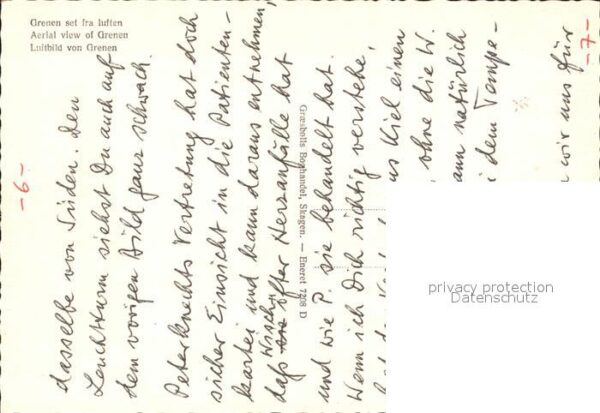 Grenen set fra luften
Aerial view of Grenen
Luftbild von Grenen
-6-
dasselbe von Süden. Den
Leuchtturm siehst Du auch auf
dem vorigen Bild ganz schwach.
Peterknechts Vertretung hat doch
sicher Einsicht in die Patienten-
kartei und kann daraus entnehmen,
daß öfter Herzanfälle hat
und wie P. sie behandelt hat.
Wenn ich Dich richtig verstehe,
Kiel einen
, ohne die W.
ann natürlich
dem Tempe-
wir uns für
-7-
Græsbølls Boghandel, Skagen. — Eneret 7208 D
privacy protection
Datenschutz